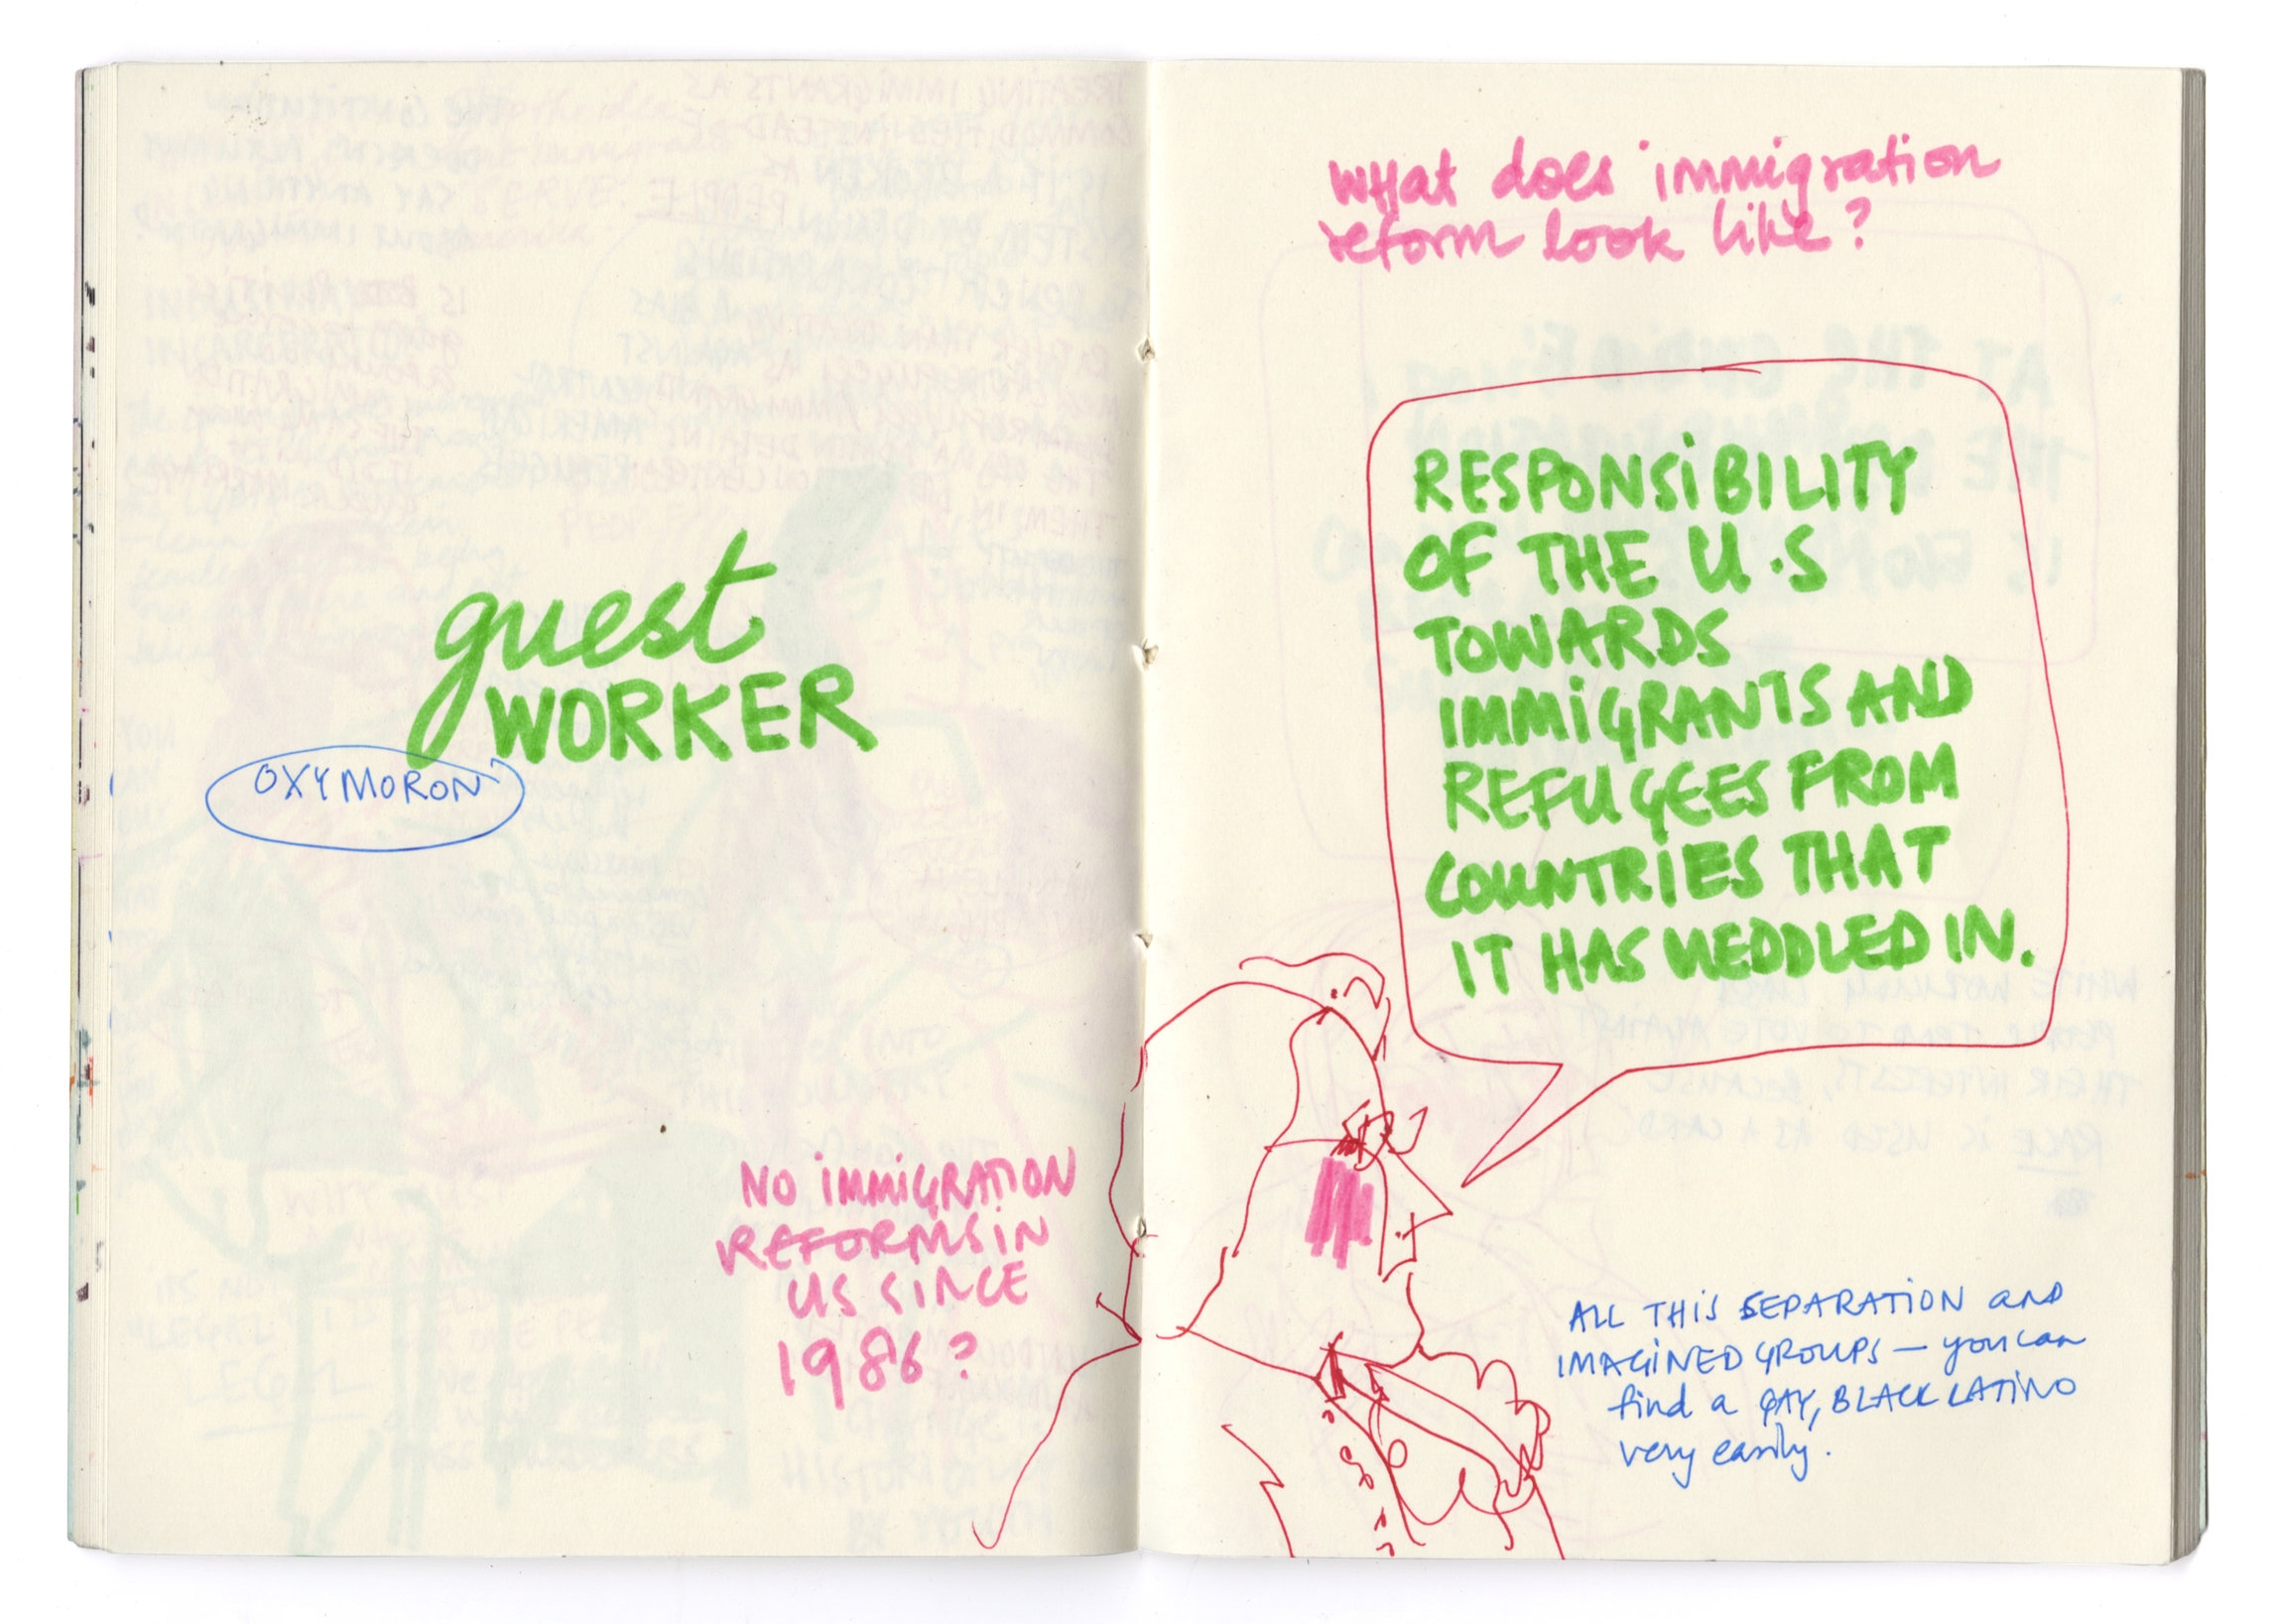 guest
WORKER
OXYMORON
NO IMMIGRATION
REFORMS IN
US SINCE
1986?
What does immigration
reform look like?
RESPONSIBILITY
OF THE U.S
TOWARDS
IMMIGRANTS AND
REFUGEES FROM
COUNTRIES THAT
IT HAS MEDDLED IN.
ALL THIS SEPARATION and
IMAGINED GROUPS — you can
find a GAY, BLACK LATINO
very easily.